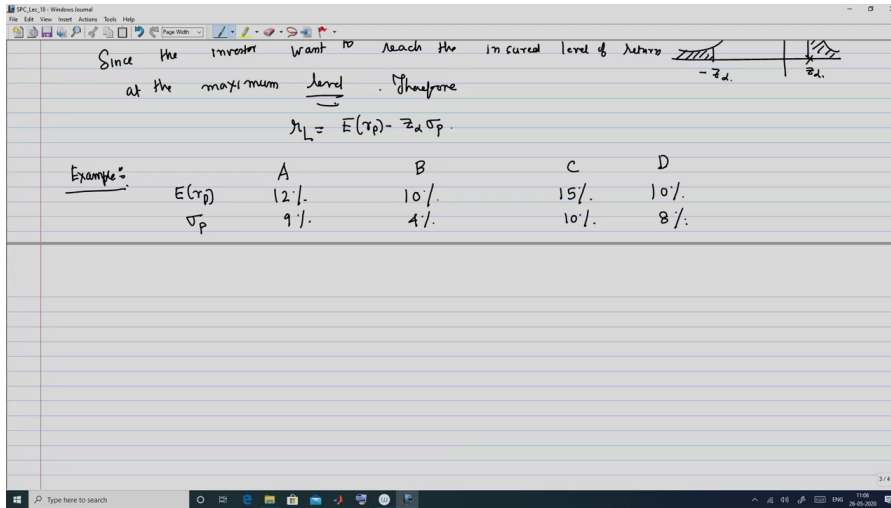 SPC_Lec_18 - Windows Journal
File Edit View Insert Actions Tools Help
Page Width
Since the investor want to reach the insured level of return
at the maximum level . Therefore
- zα. zα.
r_L = E(r_p) - z_α σ_p .
Example:- A B C D
E(r_p) 12%. 10%. 15%. 10%.
σ_p 9%. 4%. 10%. 8%.
3 / 4
Type here to search
ENG 11:06
26-05-2020